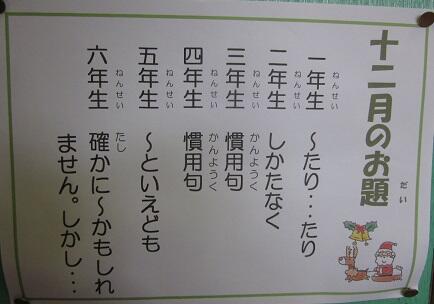 十二月のお題
だい
一年生 ～たり・・・たり
ねんせい
二年生 しかたなく
ねんせい
三年生 慣用句
ねんせい かんようく
四年生 慣用句
ねんせい かんようく
五年生 ～といえども
ねんせい
六年生 確かに～かもしれ
ねんせい たし
ません。しかし・・・